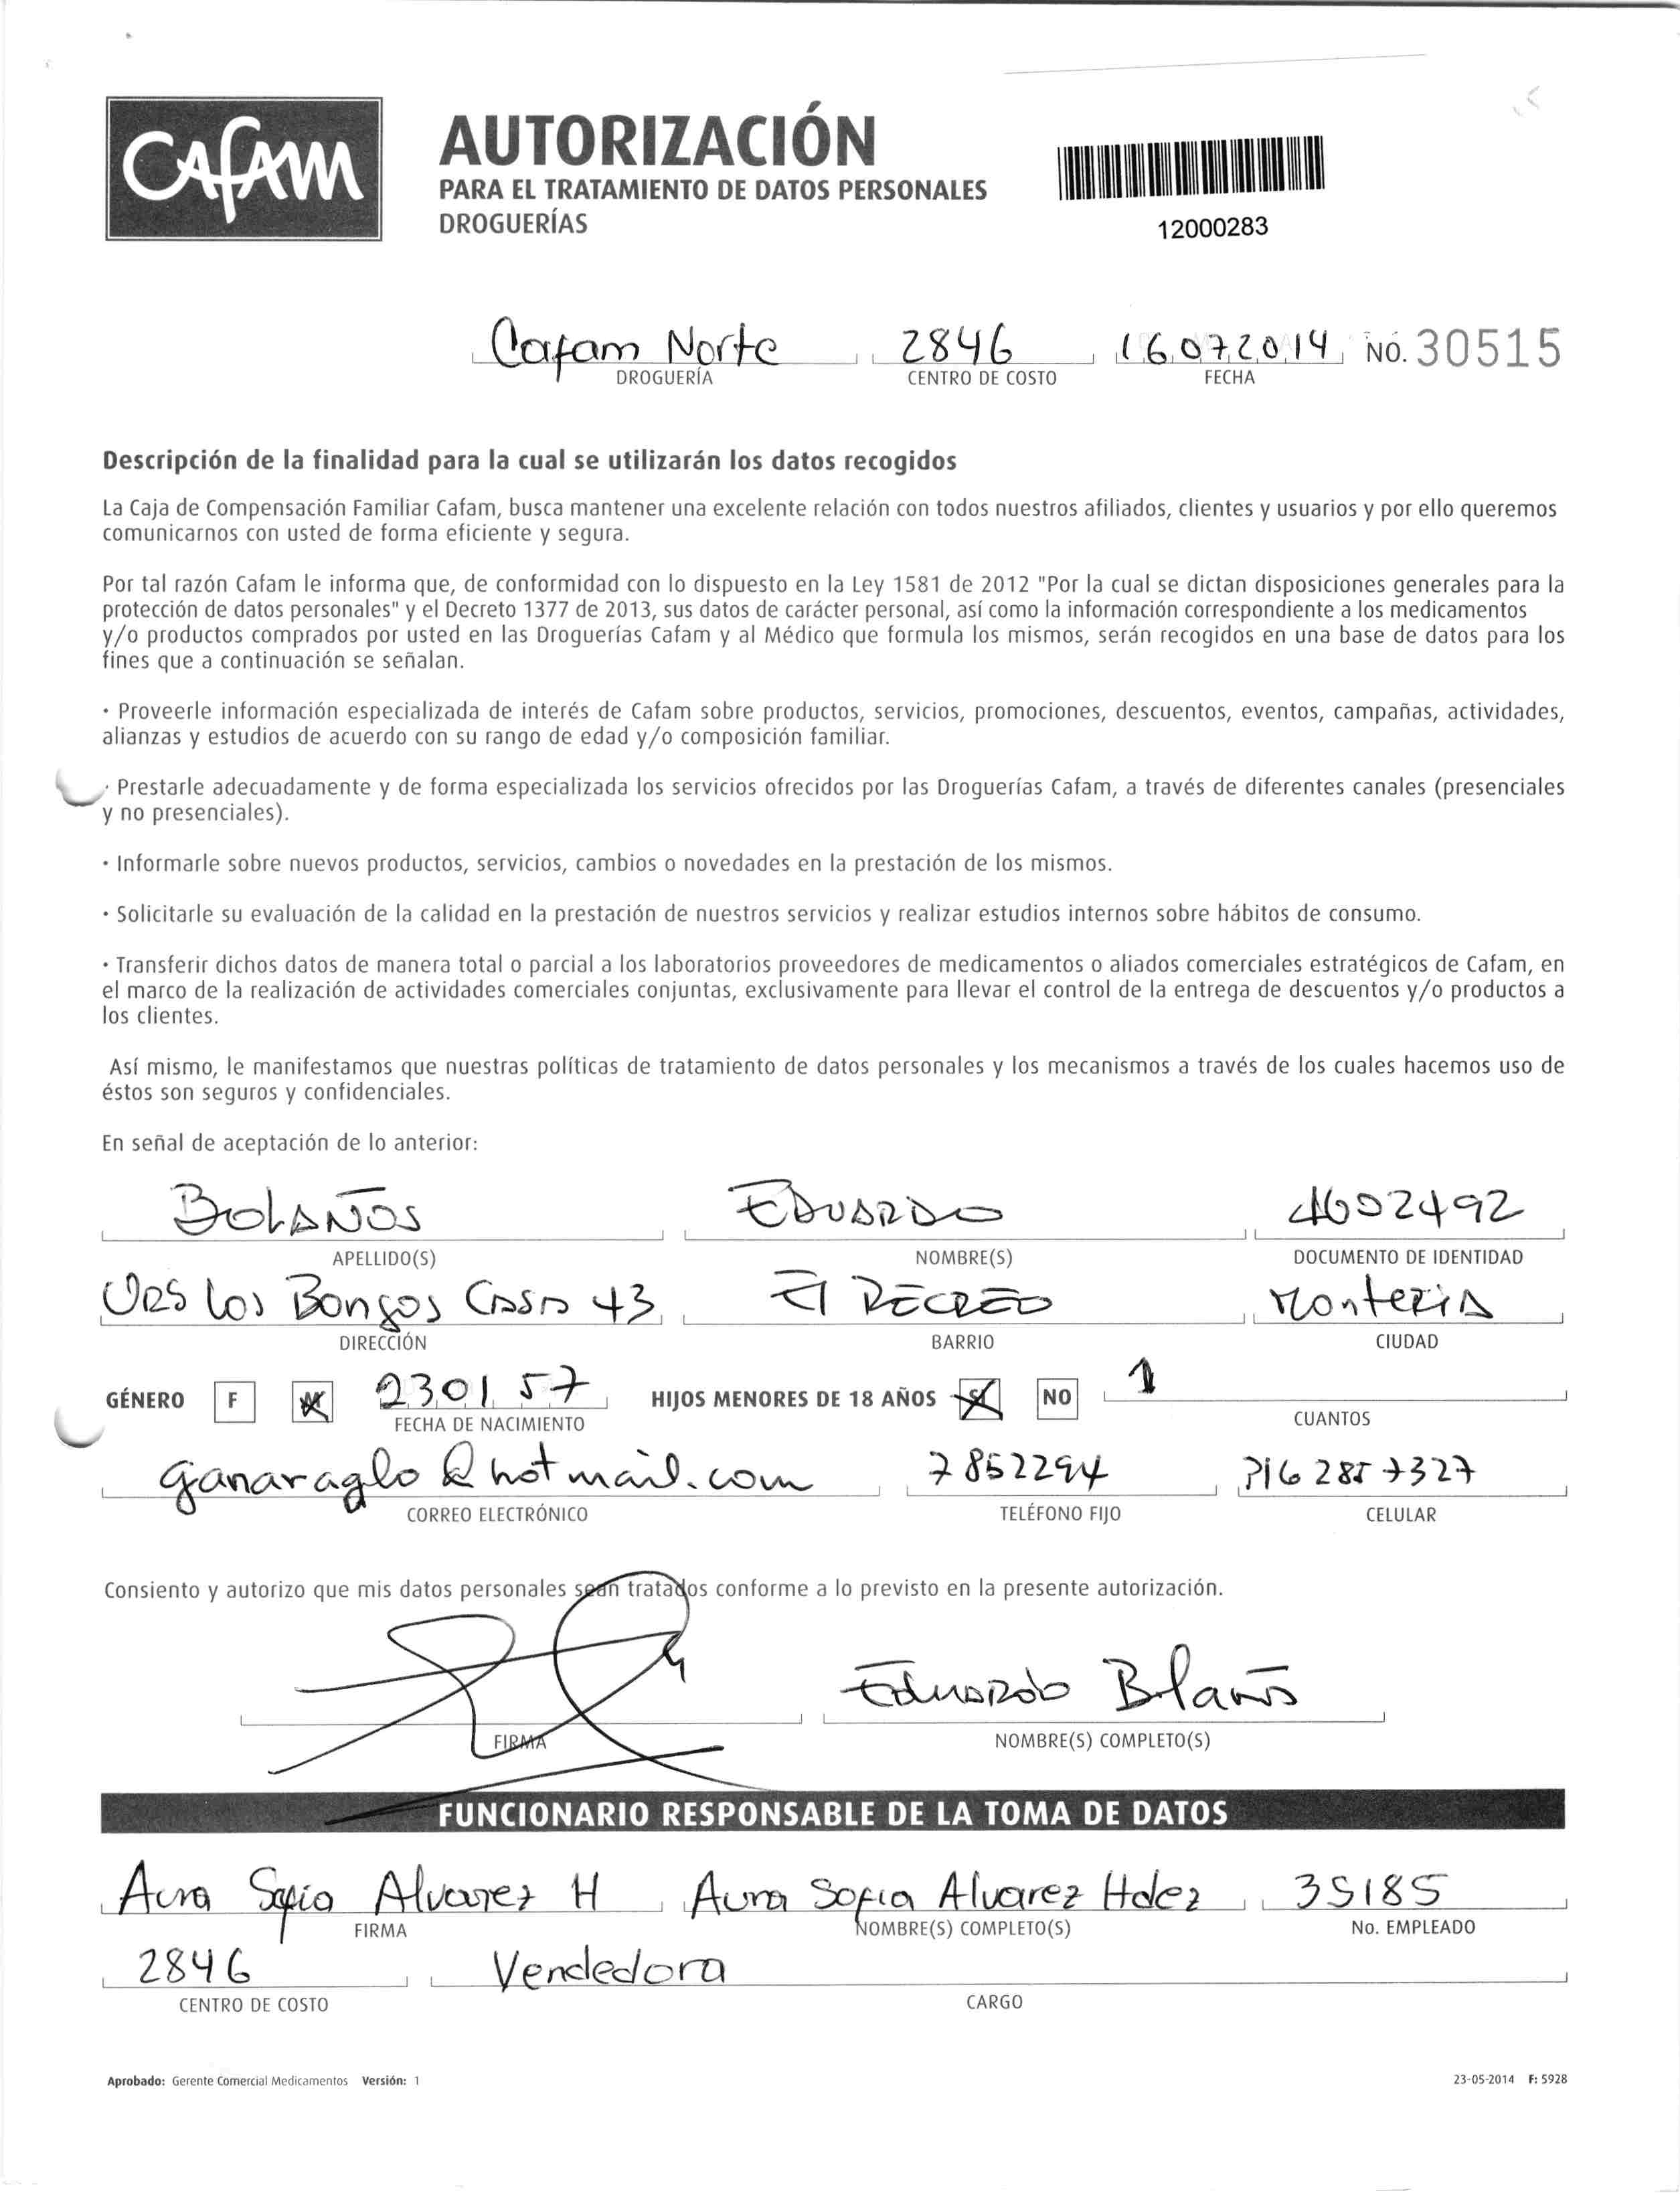 CAFAM
AUTORIZACIÓN
PARA EL TRATAMIENTO DE DATOS PERSONALES
DROGUERÍAS
12000283
Cafam Norte 2846 16072014 NO. 30515
DROGUERÍA CENTRO DE COSTO FECHA
Descripción de la finalidad para la cual se utilizarán los datos recogidos
La Caja de Compensación Familiar Cafam, busca mantener una excelente relación con todos nuestros afiliados, clientes y usuarios y por ello queremos
comunicarnos con usted de forma eficiente y segura.
Por tal razón Cafam le informa que, de conformidad con lo dispuesto en la Ley 1581 de 2012 "Por la cual se dictan disposiciones generales para la
protección de datos personales" y el Decreto 1377 de 2013, sus datos de carácter personal, así como la información correspondiente a los medicamentos
y/o productos comprados por usted en las Droguerías Cafam y al Médico que formula los mismos, serán recogidos en una base de datos para los
fines que a continuación se señalan.
· Proveerle información especializada de interés de Cafam sobre productos, servicios, promociones, descuentos, eventos, campañas, actividades,
alianzas y estudios de acuerdo con su rango de edad y/o composición familiar.
· Prestarle adecuadamente y de forma especializada los servicios ofrecidos por las Droguerías Cafam, a través de diferentes canales (presenciales
y no presenciales).
· Informarle sobre nuevos productos, servicios, cambios o novedades en la prestación de los mismos.
· Solicitarle su evaluación de la calidad en la prestación de nuestros servicios y realizar estudios internos sobre hábitos de consumo.
· Transferir dichos datos de manera total o parcial a los laboratorios proveedores de medicamentos o aliados comerciales estratégicos de Cafam, en
el marco de la realización de actividades comerciales conjuntas, exclusivamente para llevar el control de la entrega de descuentos y/o productos a
los clientes.
Así mismo, le manifestamos que nuestras políticas de tratamiento de datos personales y los mecanismos a través de los cuales hacemos uso de
éstos son seguros y confidenciales.
En señal de aceptación de lo anterior:
BOLAÑOS EDUARDO 4602492
APELLIDO(S) NOMBRE(S) DOCUMENTO DE IDENTIDAD
Los Bongos Casa 43 El RECREO Monteria
DIRECCIÓN BARRIO CIUDAD
GÉNERO F M 230157 HIJOS MENORES DE 18 AÑOS SI NO 1
FECHA DE NACIMIENTO CUANTOS
ganaraglo@hotmail.com 7852294
CORREO ELECTRÓNICO TELÉFONO FIJO CELULAR
Consiento y autorizo que mis datos personales sean tratados conforme a lo previsto en la presente autorización.
Eduardo Blaños
FIRMA NOMBRE(S) COMPLETO(S)
FUNCIONARIO RESPONSABLE DE LA TOMA DE DATOS
Aura Sofia Alvarez H Aura Sofia Alvarez Hdez 35185
FIRMA NOMBRE(S) COMPLETO(S) No. EMPLEADO
2846 Vendedora
CENTRO DE COSTO CARGO
Aprobado: Gerente Comercial Medicamentos Versión: 1 23-05-2014 F: 5928